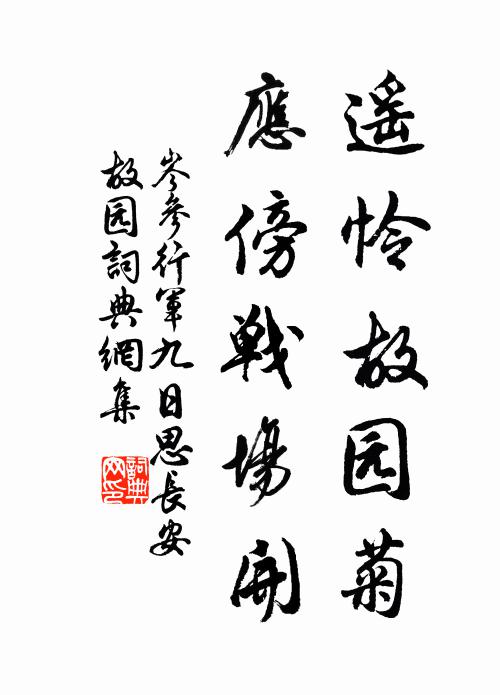 遥怜故园菊
應傍戰場開
岑參行軍九日思長安
故园詞典網集
詞典网印